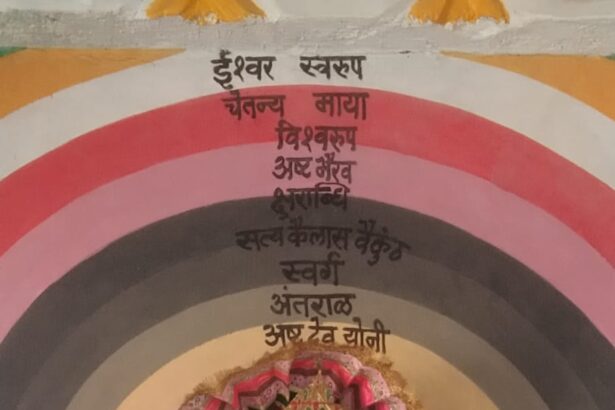 ईश्वर स्वरुप
चैतन्य माया
विश्वरुप
अष्ट भैरव
क्षराब्धि
सत्य कैलास वैकुंठ
स्वर्ग
अंतराळ
अष्ट देव योनी